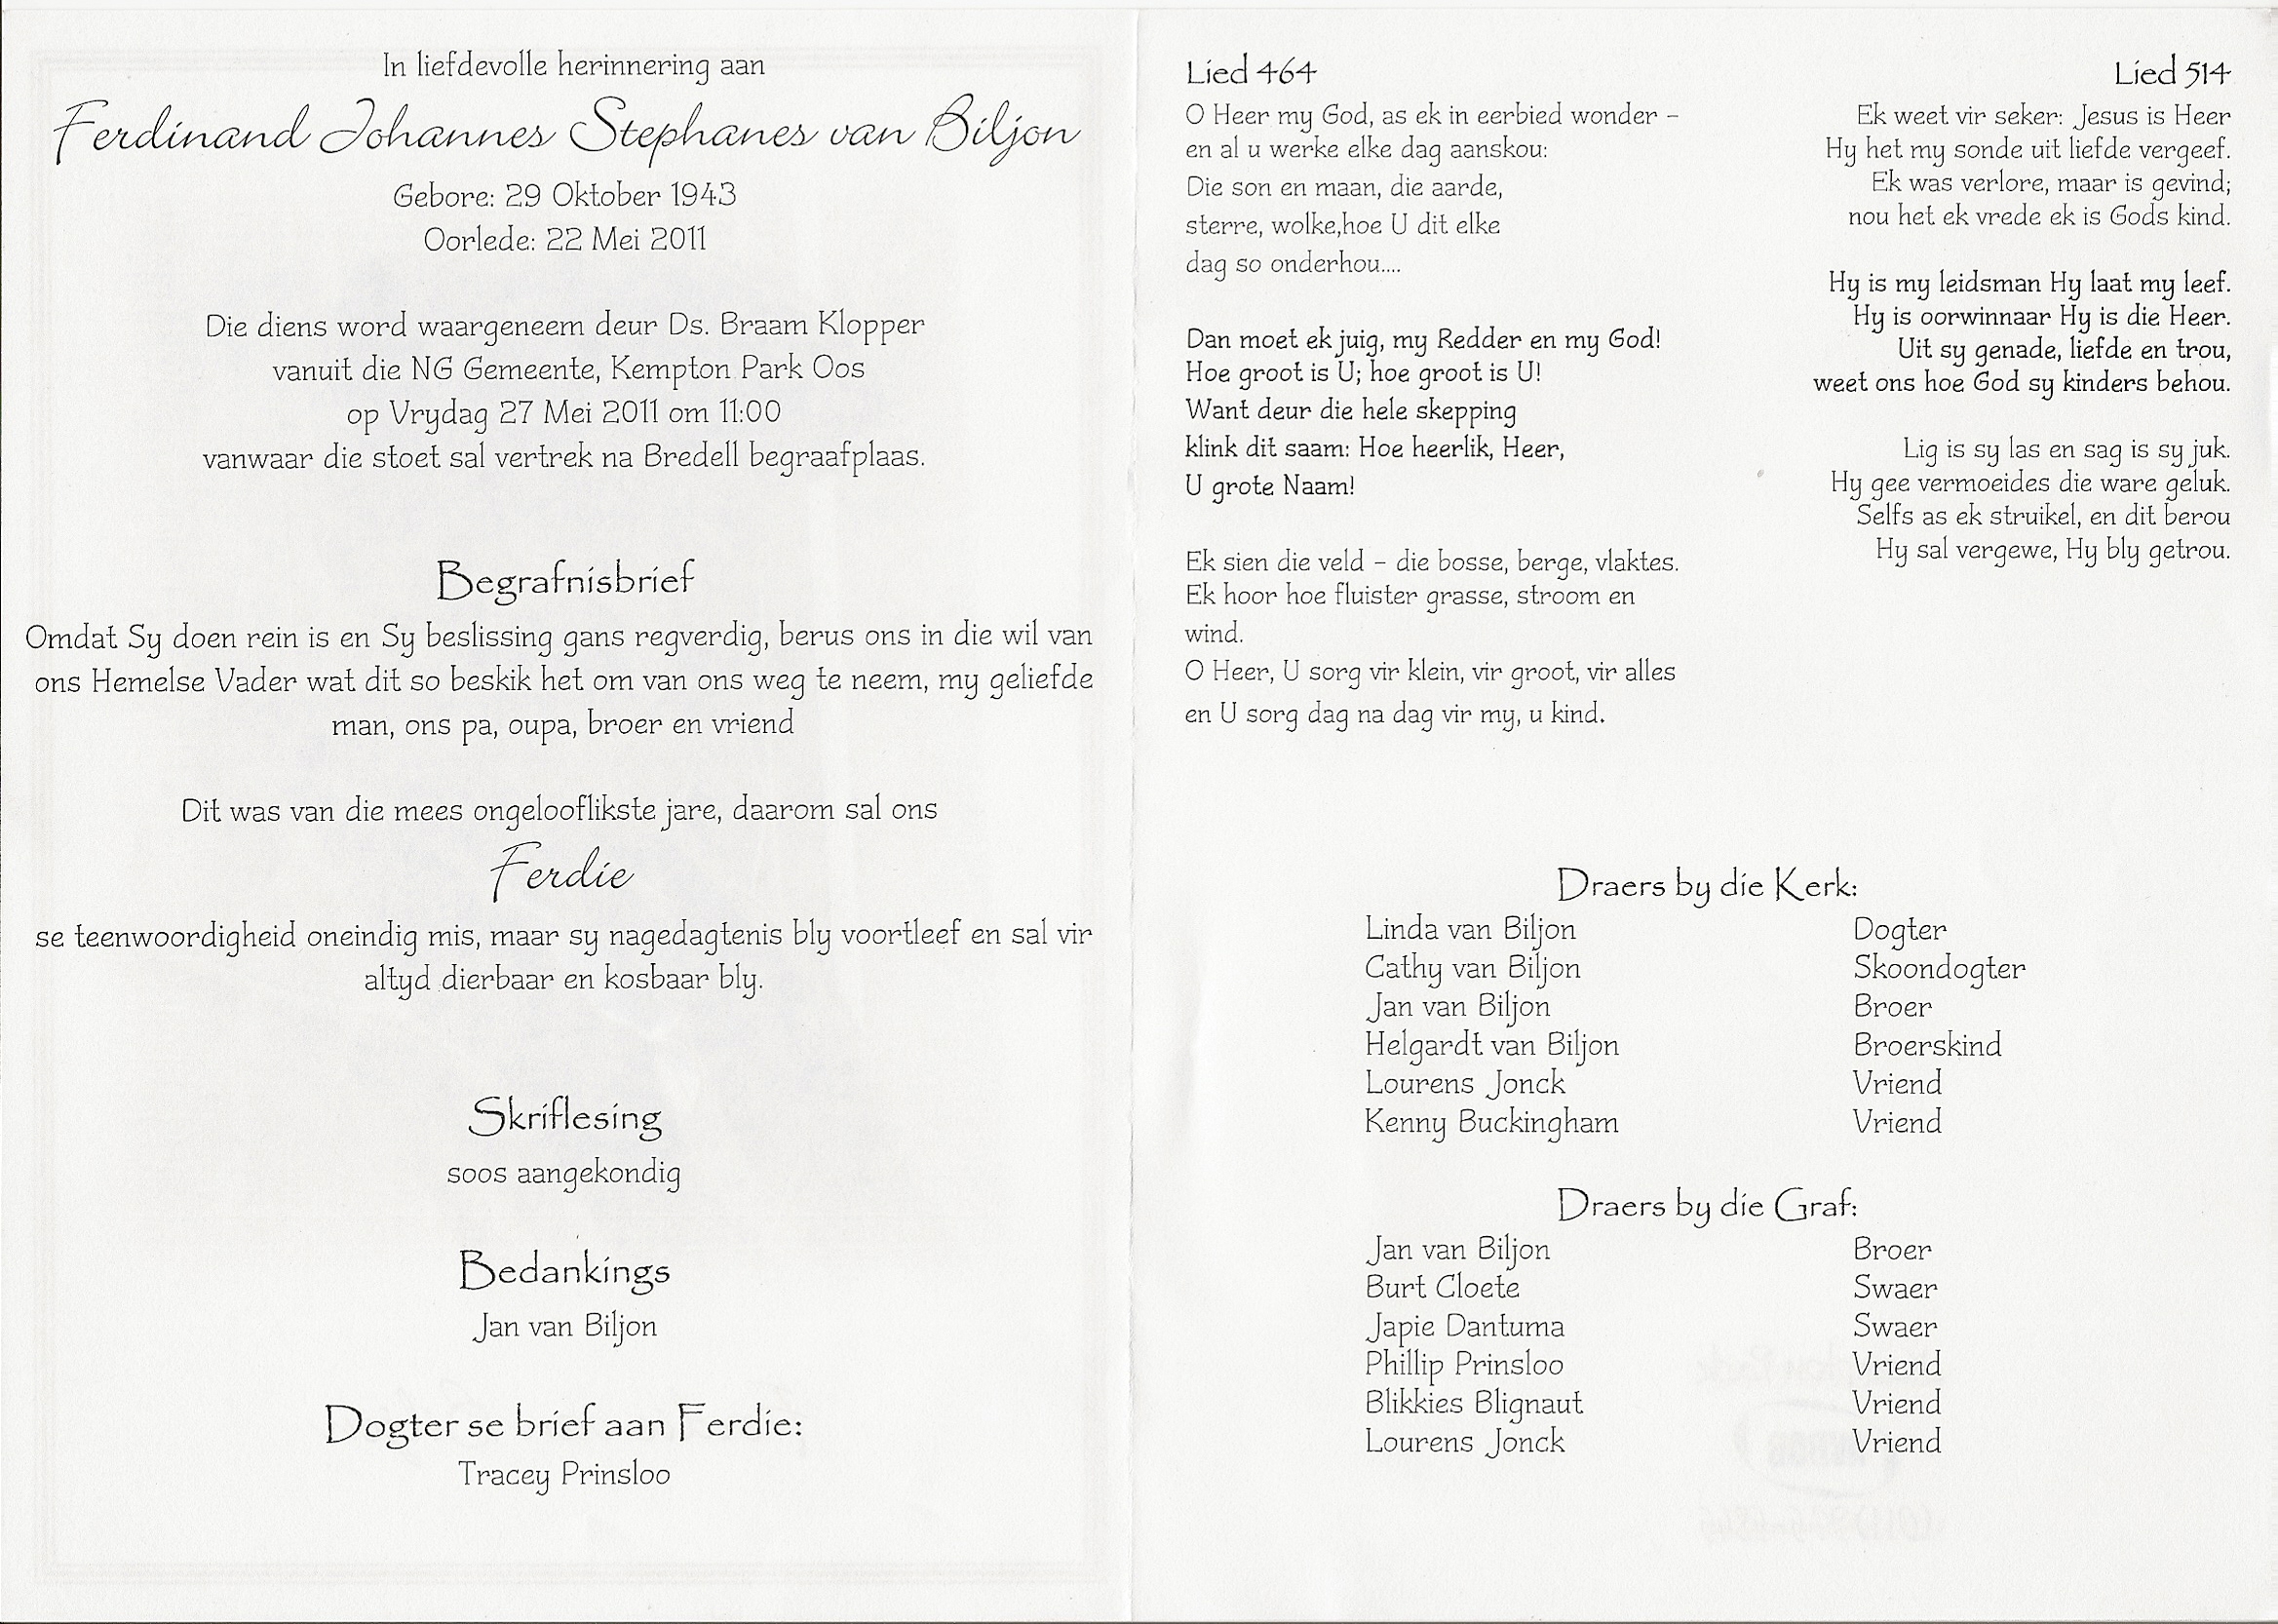 In liefdevolle herinnering aan
Ferdinand Johannes Stephanes van Biljon
Gebore: 29 Oktober 1943
Oorlede: 22 Mei 2011
Die diens word waargeneem deur Ds. Braam Klopper
vanuit die NG Gemeente, Kempton Park Oos
op Vrydag 27 Mei 2011 om 11:00
vanwaar die stoet sal vertrek na Bredell begraafplaas.
Begrafnisbrief
Omdat Sy doen rein is en Sy beslissing gans regverdig, berus ons in die wil van
ons Hemelse Vader wat dit so beskik het om van ons weg te neem, my geliefde
man, ons pa, oupa, broer en vriend
Dit was van die mees ongelooflikste jare, daarom sal ons
Ferdie
se teenwoordigheid oneindig mis, maar sy nagedagtenis bly voortleef en sal vir
altyd dierbaar en kosbaar bly.
Skriflesing
soos aangekondig
Bedankings
Jan van Biljon
Dogter se brief aan Ferdie:
Tracey Prinsloo
Lied 464
O Heer my God, as ek in eerbied wonder –
en al u werke elke dag aanskou:
Die son en maan, die aarde,
sterre, wolke,hoe U dit elke
dag so onderhou....
Dan moet ek juig, my Redder en my God!
Hoe groot is U; hoe groot is U!
Want deur die hele skepping
klink dit saam: Hoe heerlik, Heer,
U grote Naam!
Ek sien die veld – die bosse, berge, vlaktes.
Ek hoor hoe fluister grasse, stroom en
wind.
O Heer, U sorg vir klein, vir groot, vir alles
en U sorg dag na dag vir my, u kind.
Lied 514
Ek weet vir seker: Jesus is Heer
Hy het my sonde uit liefde vergeef.
Ek was verlore, maar is gevind;
nou het ek vrede ek is Gods kind.
Hy is my leidsman Hy laat my leef.
Hy is oorwinnaar Hy is die Heer.
Uit sy genade, liefde en trou,
weet ons hoe God sy kinders behou.
Lig is sy las en sag is sy juk.
Hy gee vermoeides die ware geluk.
Selfs as ek struikel, en dit berou
Hy sal vergewe, Hy bly getrou.
Draers by die Kerk:
Linda van Biljon Dogter
Cathy van Biljon Skoondogter
Jan van Biljon Broer
Helgardt van Biljon Broerskind
Lourens Jonck Vriend
Kenny Buckingham Vriend
Draers by die Graf:
Jan van Biljon Broer
Burt Cloete Swaer
Japie Dantuma Swaer
Phillip Prinsloo Vriend
Blikkies Blignaut Vriend
Lourens Jonck Vriend